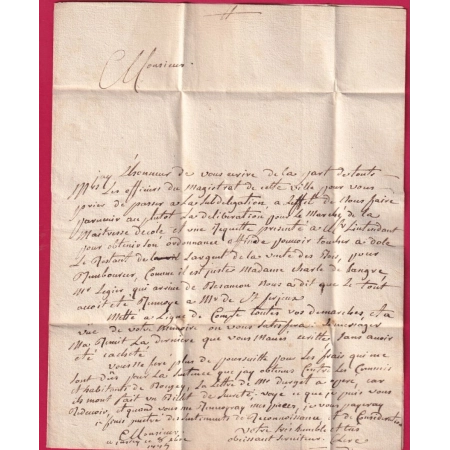 Monsieur.
jay L'honneur de vous ecrire de la part de touts
Mrs Les officiers du Magistrat de cette Ville pour vous
prier de passer a La Subdelegation, a Leffet de Nous faire
parvenir au plutot La deliberation pour le Marché de la
Maitresse decole, et une Requette presenté a Mr Lintendant
pour obtenir son ordonnance affin de pouvoir toucher a dole
Le Restant de Largent de la vente des Bois, pour
Rembourcer, Comme il est juste Madame charle de
Mr Legier qui arrive de Besancon Nous a dit que Le tout
avoit eté Remis a Mr de St
Mettez a Ligne de Compte toutes vos demarches, et a
vue de votre Memoire on vous Satisfera
La derniere que vous mave ecritte sans avoir
eté cacheté
vous ne fere plus de poursuitte pour Les frais que me
sont dus par La Sentence que jay obtenue Contre Les Commis
et habitants de La Lettre de Mr car
ils mont fait un Billet de voye ce que je puis vous
Redevoir, et quand vous me Renverray mes pieces, je vous payeray
et suis sentiments de Reconnoissance et de Consideration
Monsieur
votre tres humble et tres
obeissant serviteur